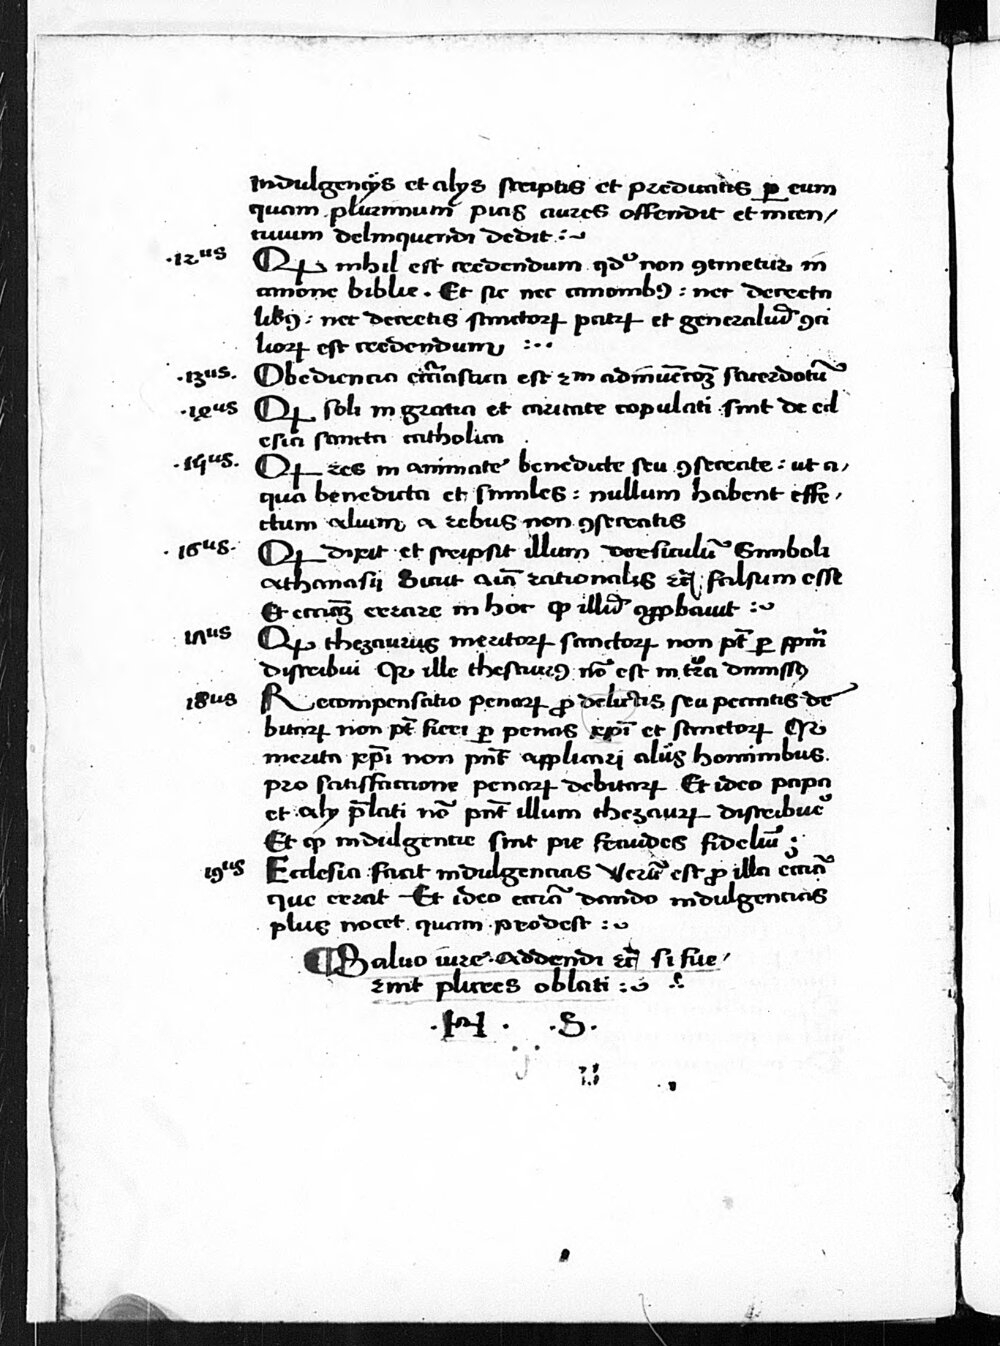 Indulgencijs et alijs scriptis et predicatis per eum
quam plurimum pias aures offendit et incen/
tiuum delinquendi dedit :~
.12us Qp nihil est credendum qdo non 9tinetur in
canone biblie . Et sic nec canonib9 : nec decreta
lib9 : nec decretis sanctorꝝ patrꝝ et generaliū 9ci
liorꝝ est credendum :..
.13us. Obediencia eccliastica est 2m adinuentoꝝ sacerdotū
.14us Qp soli in gratia et caritate copulati sint de eccl
esia sancta catholica .
.15us. Qp res in animate benedicte seu 9secrate : ut a/
qua benedicta et similes : nullum habent effe/
ctum alium a rebus non 9secratis
.16us. Qp dixit et scripsit illum versiculū Simboli
athanasij Sicut aīa rationalis &c falsum esse
Et ecciaꝫ errare in hoc qp illud 9probauit :~
17us Qp thezaurus meritorꝝ sanctorꝝ non pt per ppm
distribui Qr ille thesaur9 nō est in tra dimiss9
18us Recompensatio penarꝝ pro delictis seu peccatis de
bitarꝝ non pt fieri per penas xpi et sanctorꝝ Qr
merita xpi non pnt applicari alijs hominibus
pro satisfaccione penarꝝ debitarꝝ Et ideo papa
et alij plati nō pnt illum thezaurꝝ distribue
Et qp indulgentie sint pie fraudes fideliū ;
19us Ecclesia facit indulgencias Verū est pro illa ecciā
que errat Et ideo ecciā dando indulgencias
plus nocet quam prodest :~
¶ Saluo iure addendi &c si fue/
rint plures oblati :~
.H. .S.